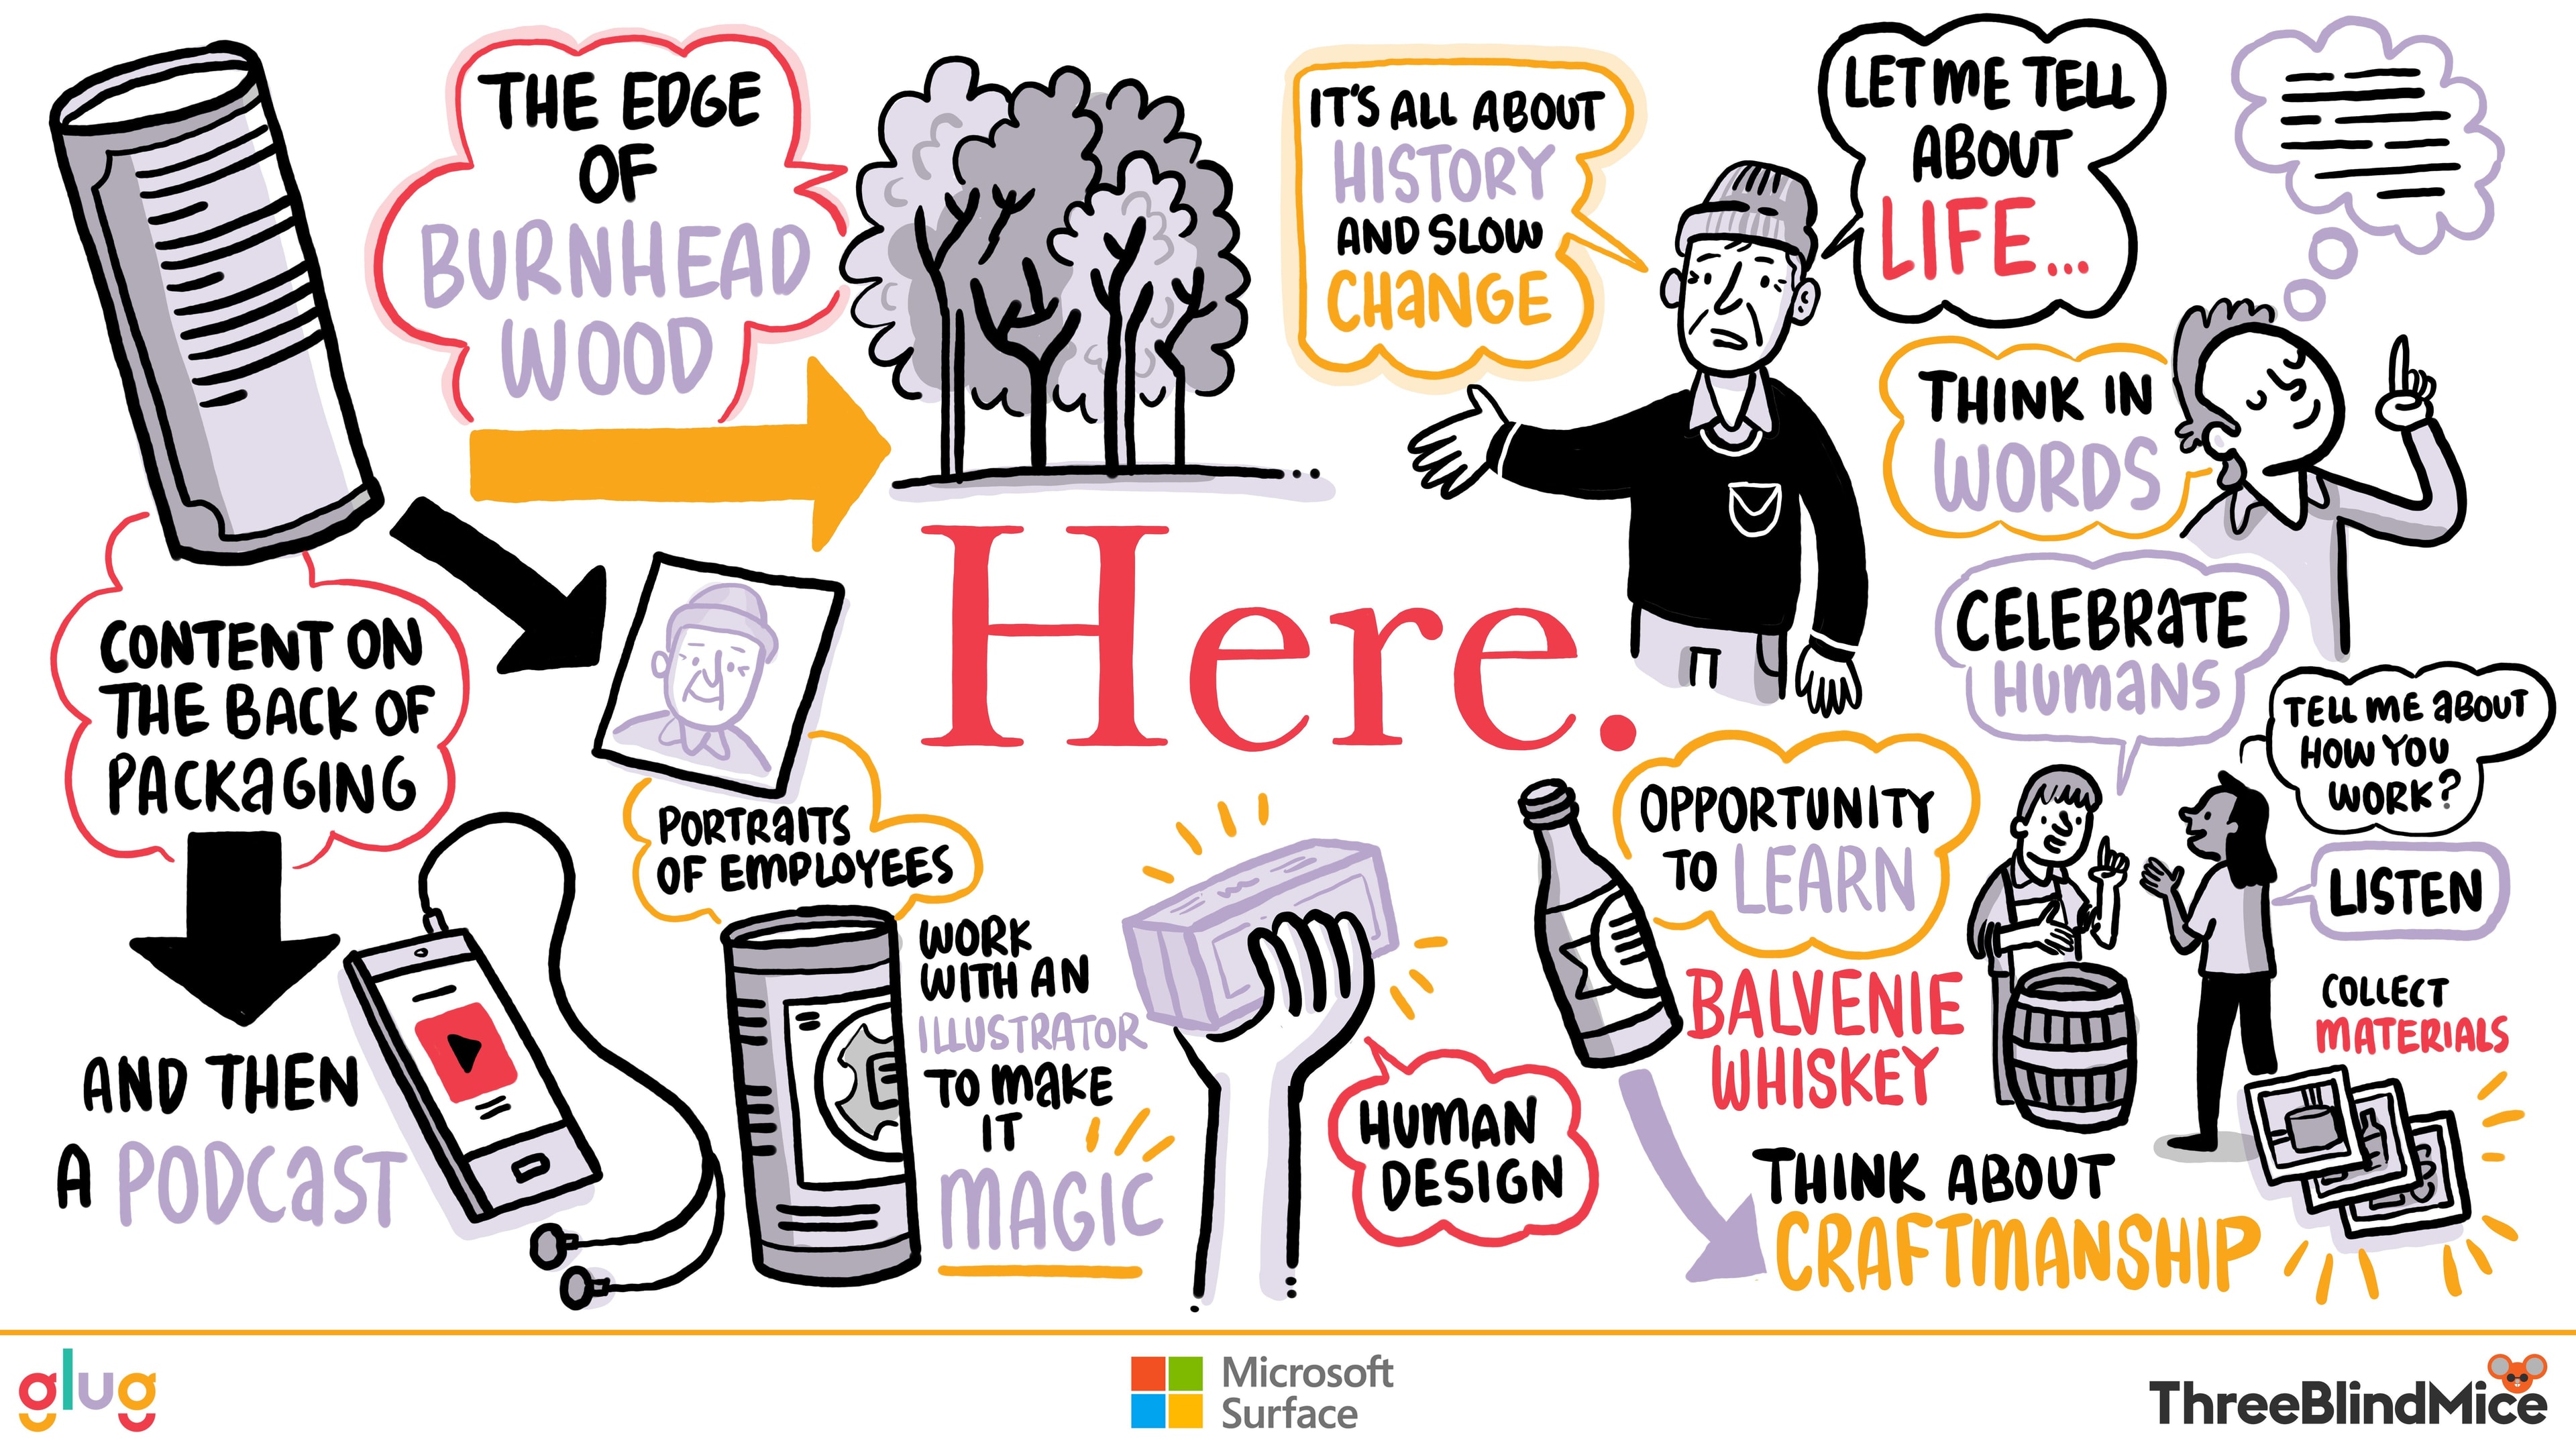 THE EDGE
OF
BURNHEAD
WOOD
IT'S ALL ABOUT
HISTORY
AND SLOW
CHANGE
LET ME TELL
ABOUT
LIFE...
THINK IN
WORDS
Here.
CONTENT ON
THE BACK OF
PACKAGING
AND THEN
A PODCAST
PORTRAITS
OF EMPLOYEES
WORK
WITH AN
ILLUSTRATOR
TO MAKE
IT
MAGIC
HUMAN
DESIGN
CELEBRATE
HUMANS
TELL ME ABOUT
HOW YOU
WORK?
LISTEN
OPPORTUNITY
TO LEARN
BALVENIE
WHISKEY
THINK ABOUT
CRAFTMANSHIP
COLLECT
MATERIALS
glug
Microsoft
Surface
ThreeBlindMice